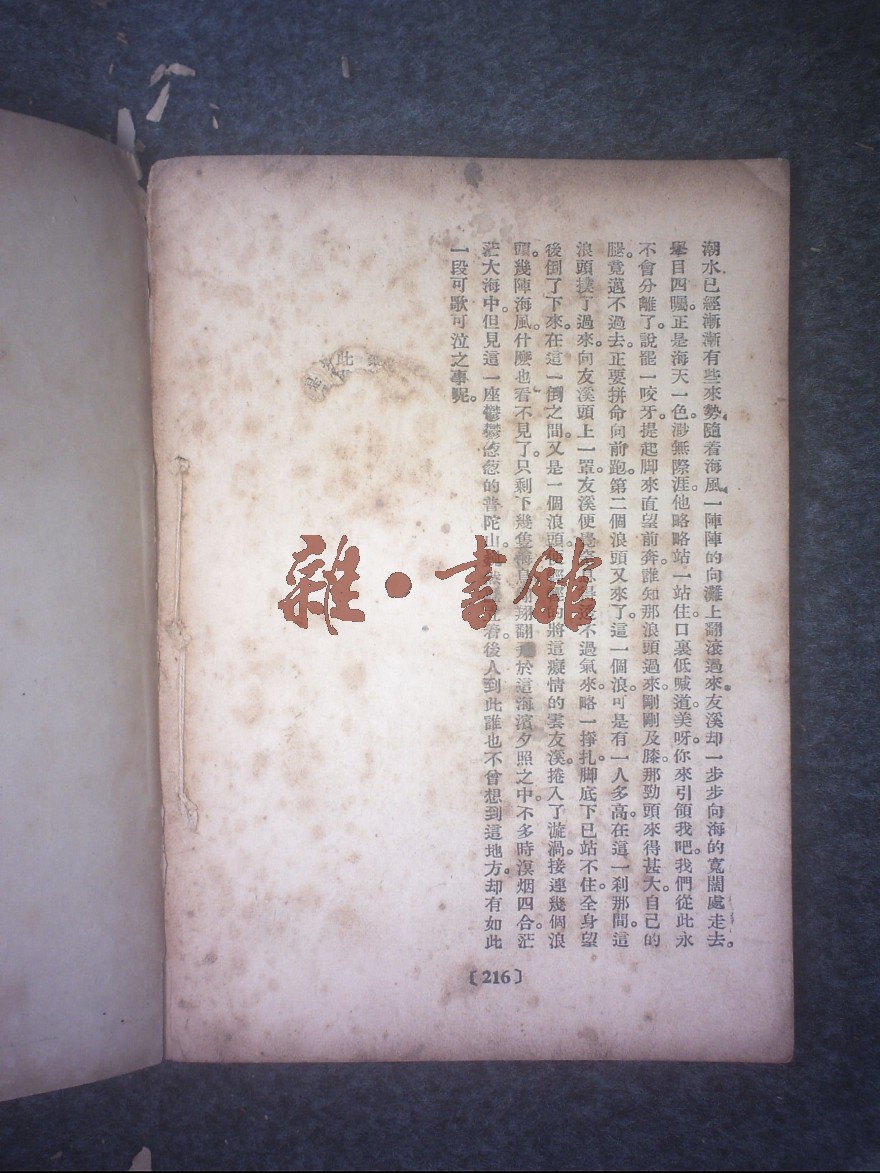 潮水已經漸漸有些來勢隨着海風一陣陣的向灘上翻滾過來友溪却一步步向海的寬闊處走去。
舉目四矚正是海天一色渺無際涯他略略站一站住口裏低喊道美呀你來引領我吧我們從此永
不會分離了說罷一咬牙提起脚來直望前奔誰知那浪頭過來剛剛及膝那勁頭來得甚大自己的
腿竟邁不過去正要拼命向前跑第二個浪頭又來了這一個浪可是有一人多高在這一刹那間這
浪頭撲了過來向友溪頭上一罩友溪便覺不過氣來略一掙扎脚底下已站不住全身望
後倒了下來在這一倒之間又是一個浪頭將這癡情的雲友溪捲入了漩渦接連幾個浪
頭幾陣海風什麼也看不見了只剩下幾隻海翔翻於這海濱夕照之中不多時溟烟四合茫
茫大海中但見這一座鬱鬱葱葱的普陀山着後人到此誰也不曾想到這地方却有如此
一段可歌可泣之事呢。
〔216〕
雜·書館
此